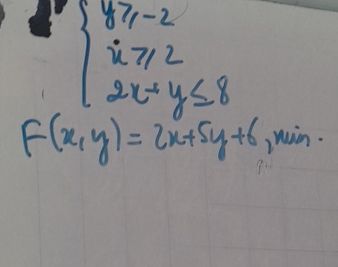 y ⩾ -2
x ⩾ 2
2x + y ≤ 8
F(x, y) = 2x+5y+6, min.